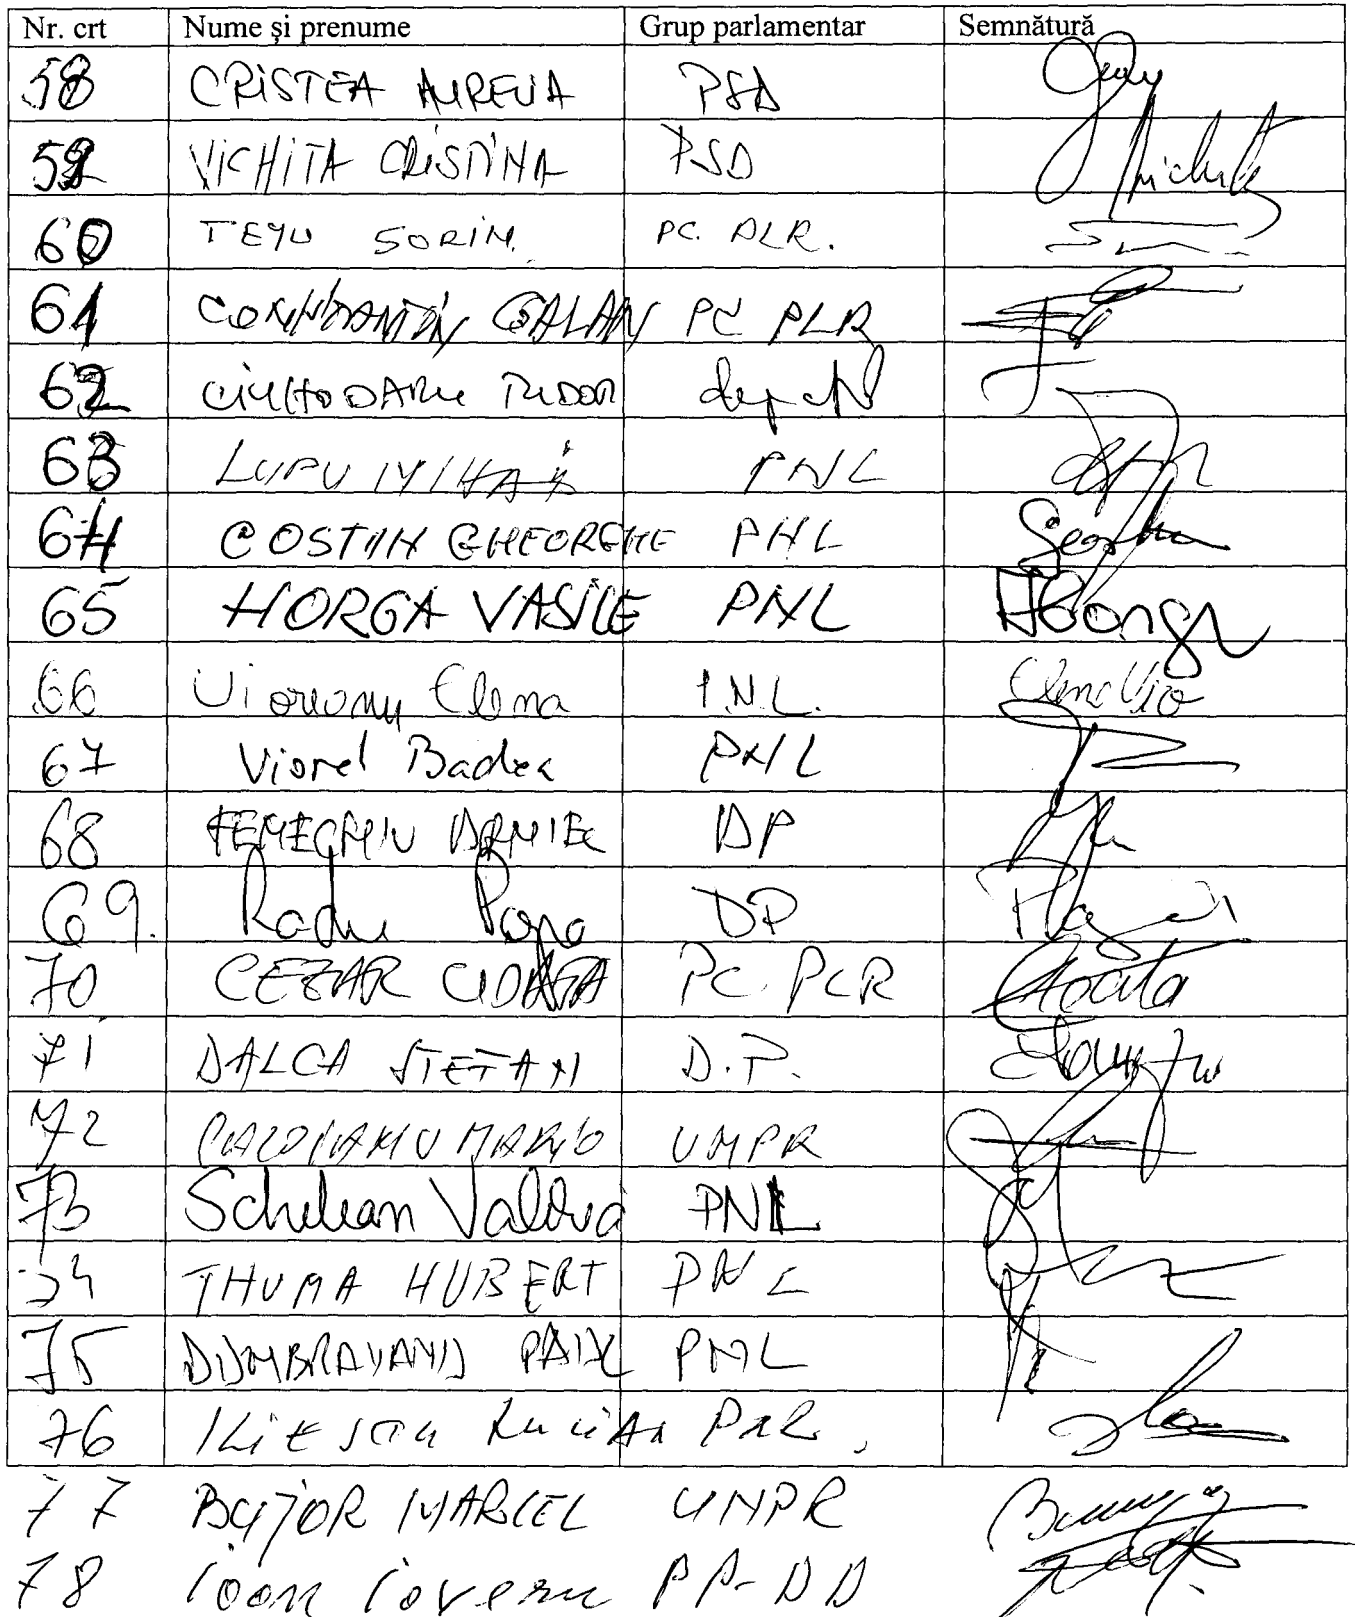 Nr. crt Nume și prenume Grup parlamentar Semnătură
58 CRISTEA AURELIA PSD
59 VICHITA CRISTINA PSD
60 TEJU SORIN. PC. PLR.
61 CONSTANTIN GALAN PC PLR
62 CIUHODARU TUDOR deputat
63 LUPU MIHAI PNL
64 COSTIN GHEORGHE PNL
65 HORGA VASILE PNL
66 Vioreanu Elena P.N.L.
67 Viorel Badea PNL
68 FENECHIU DANIEL DP
69. Radu Popa DP
70 CEZAR CIOATA PC. PLR
71 DALCA STEFAN D.P.
72 MARIO UNPR
73 Schelean Valeria PNL
74 THUMA HUBERT PNL
75 DUMBRAVANU PAUL PNL
76 ILIESCU Lucian PNL.
77 BUJOR MARCEL UNPR
78 Ioan Iovescu PP-DD